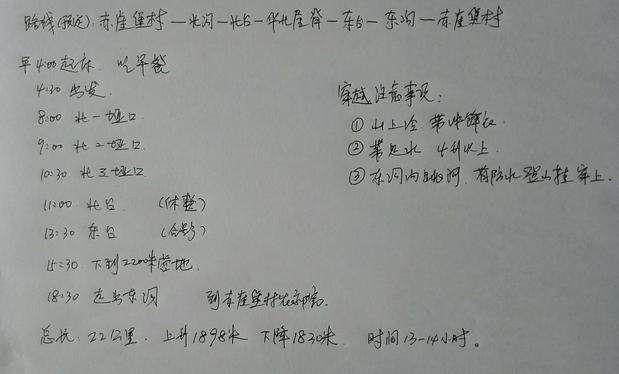 路线(预定): 赤崖堡村—北沟—北台—华北屋脊—东台—东沟—赤崖堡村
早4:00起床 吃早餐
4:30 出发
8:00 北一垭口
9:00 北二垭口
10:30 北三垭口
11:00 北台 (休整)
13:30 东台 (合影)
15:30 下到2200米营地.
18:30 走出东沟 到赤崖堡村农家院.
总长: 22公里. 上升1898米 下降1830米 时间13-14小时。
穿越注意事项:
① 山上冷. 带冲锋衣.
② 带足水 4升以上.
③ 东沟内有河, 有防水登山鞋穿上.